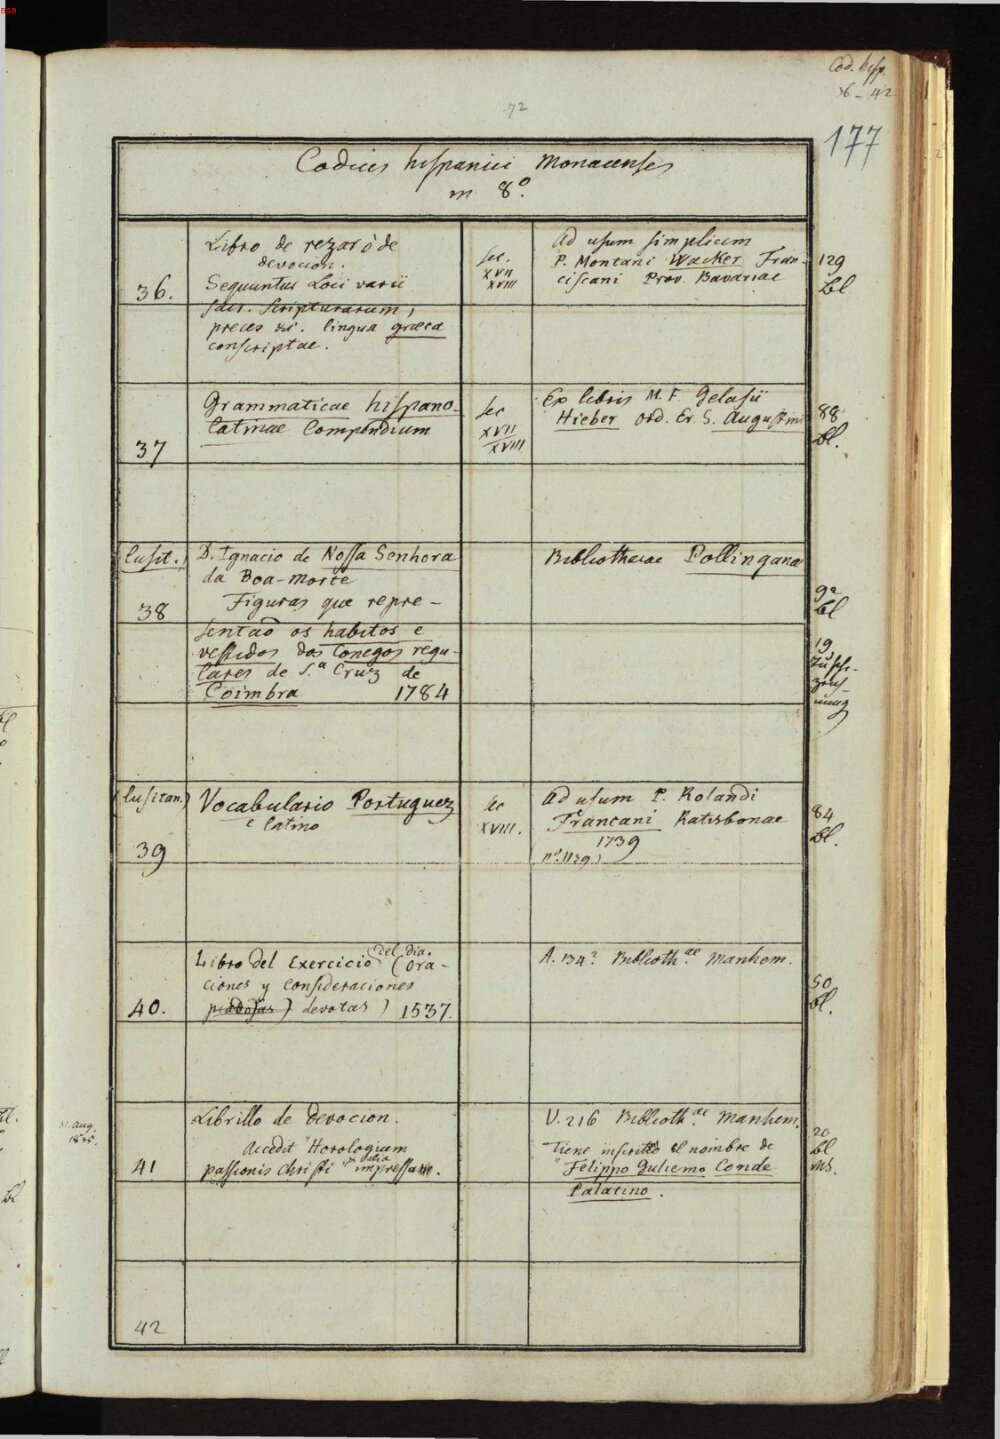 BSB
Cod. hisp
36-42
72
177
Codices hispanici Monacenses
in 8º.
36.
Libro de rezar ò de
devocion.
Sequuntur Loci varii
sacr. Scripturarum,
preces &c. lingua græca
conscriptae.
sec.
XVII
XVIII
ad usum simplicem
P. Montani Wacker Fran-
ciscani Prov. Bavariae
129
bl
37
Grammaticae hispano-
latinae Compendium
sec
XVII
XVIII
Ex libris M. F. Gelasii
Hieber Ord. Er. S. Augustini
88
bl.
(lusit.)
38
D. Ignacio de Nossa Senhora
da Boa-morte
Figuras que repre-
sentaõ os habitos e
vestidos dos Conegos regu-
lares de S.ª Cruz de
Coimbra 1784
Bibliothecae Pollingana
92
bl
19
(lusitan.)
39
Vocabulario Portuguez
e latino
sec
XVIII.
ad usum P. Rolandi
Francani Ratisbonae
1739
(nº. 1139.)
84
bl.
40.
Libro del Exercicio del dia. (Ora-
ciones y consideraciones
piadosas) devotas) 1537.
A. 134? Biblioth.ae Manhem.
50
bl.
31. Aug.
1835.
41
Librillo de devocion.
Accedit "Horologium
passionis Christi" impressum.
V. 216 Biblioth.ae Manhem.
Tiene inscritto el nombre de
"Felippo Gulielmo Conde
Palatino.
20
bl
ms.
42